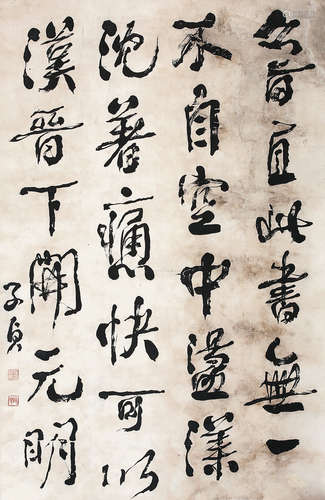 且此書無一
不自空中盪漾
沈著痛快可以
漢晉下開元明
子貞